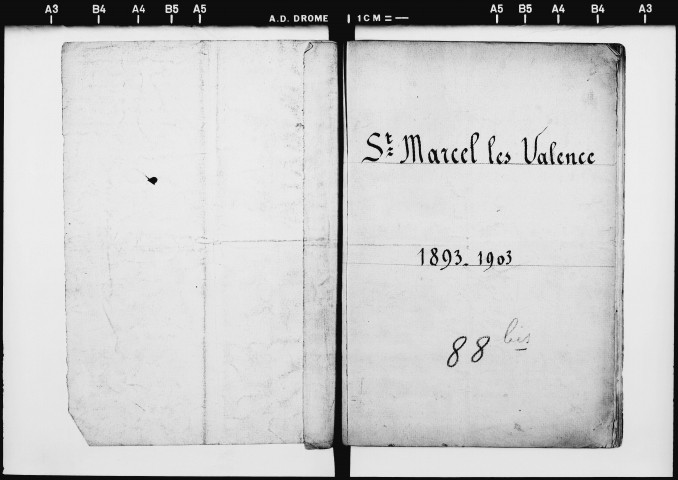 A3 B4 A4 B5 A5 A.D. DROME 1 CM = A5 B5 A4 B4 A3
St Marcel les Valence
1893. 1903
88 bis